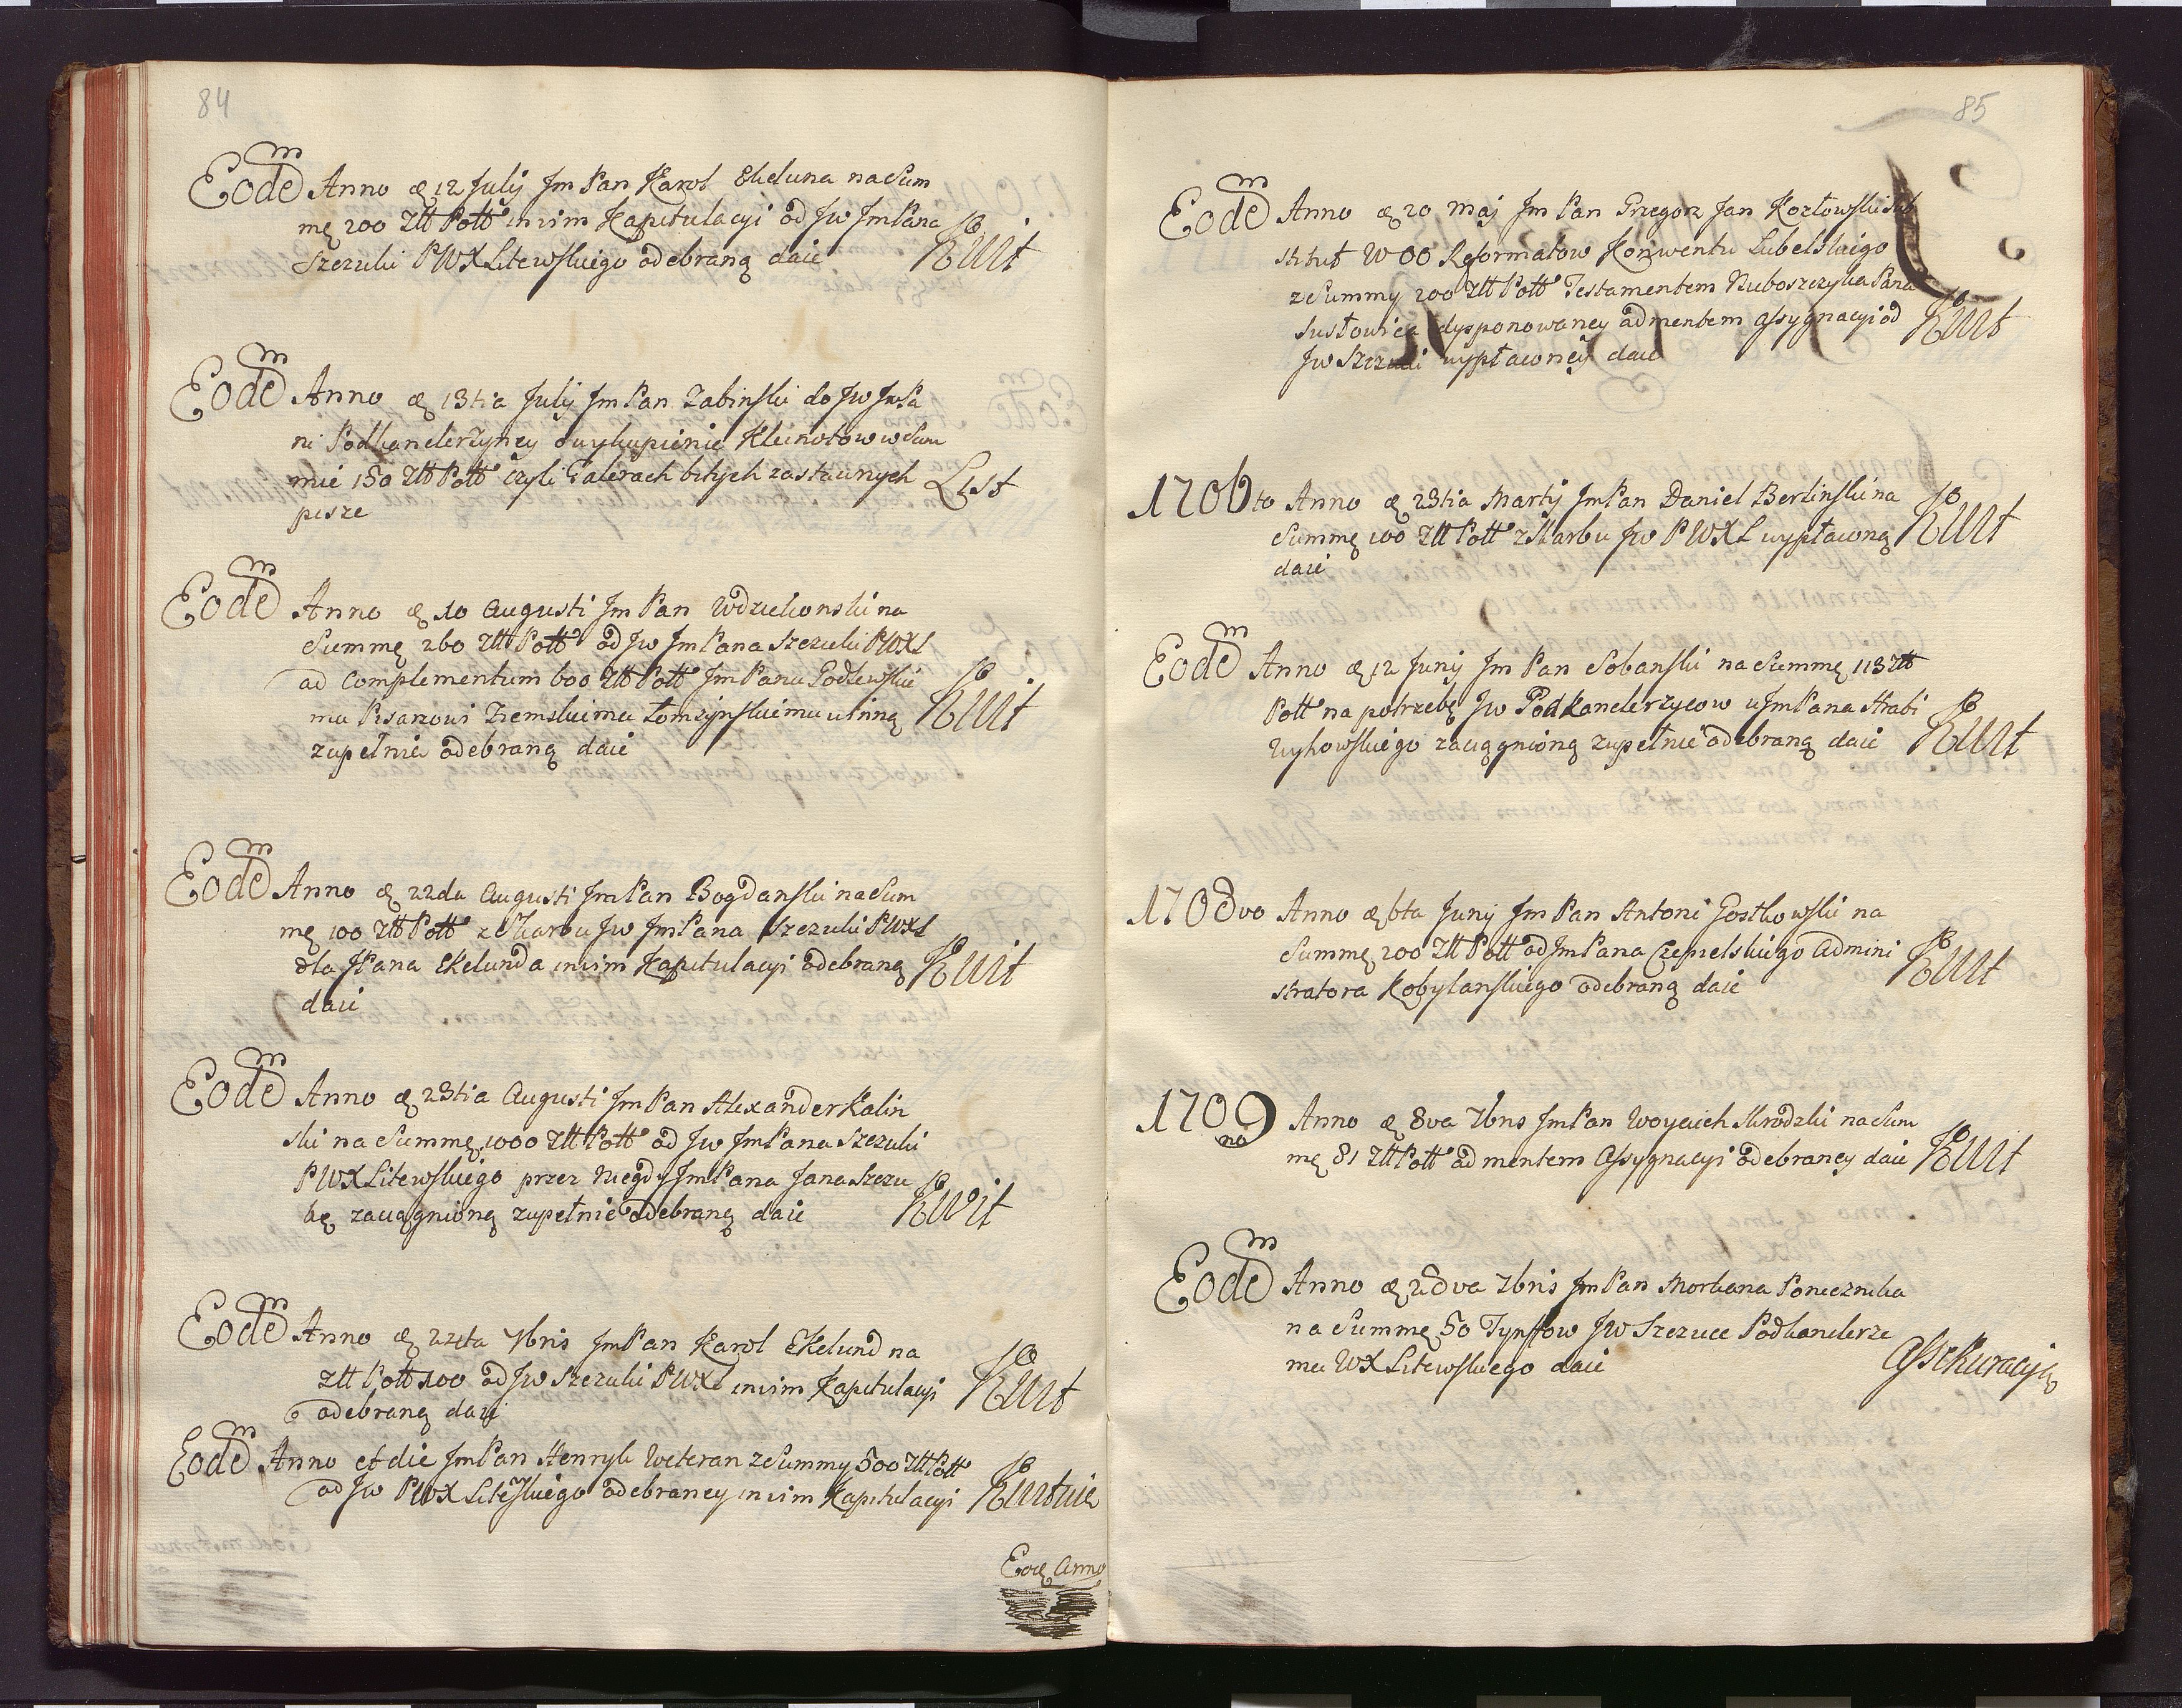 84
Eodem Anno d 12 July Jm Pan Karol Ekeluna na Sum
mę 200 Złt Poll in vim Kapitulacyi od Jw Jm Pana
Szczuki PWXLitewskiego odebraną daie Kwit
Eodem Anno d 13tia July Jm Pan Zabinski do Jw Jm Pa
ni Podkanclerzyney o wykupienie Kleinotow w Sum
mie 150 Złt Poll czyli Talerach bitych zastawnych List
pisze
Eodem Anno d 10 Augusti Jm Pan Wdziekonski na
Summę 260 Złt Poll od Jw Jm Pana Szczuki PWXL
ad Complementum 600 Złt Poll Jm Panu Godlewskie
mu Pisarzowi Ziemskiemu Łomzynskiemu winną Kwit
zupełnie odebraną daie
Eodem Anno d 22da Augusti Jm Pan Bogdanski na Sum
mę 100 Złt Poll z Skarbu Jw Jm Pana Szczuki PWXL
dla JPana Ekelunda in vim Kapitulacyi odebraną Kwit
daie
Eodem Anno d 23tia Augusti Jm Pan Alexander Kalin
ski na Summę 1000 Złt Poll od Jw Jm Pana Szczuki
PWXLitewskiego przez Niegdy Jm Pana Jana Szczu
kę zaciągnioną zupełnie odebraną daie Kwit
Eodem Anno d 24ta 7bris Jm Pan Karol Ekelund na
Złt Poll 100 od Jw Szczuki PWXL in vim Kapitulacyi Kwit
odebraną daie
Eodem Anno et die Jm Pan Henryk Weteran z Summy 500 Złt Poll
od Jw PWXLitewskiego odebraney in vim Kapitulacyi Kwituie
Eod Anno
85
Eodem Anno d 20 Maj Jm Pan Grzegorz Jan Kozłowski Sub
stitut W OO Reformatow Konwentu Lubelskiego
z Summy 200 Złt Poll Testamentem Nieboszczyka Pana
Susłowica dysponowaney ad mentem Assygnacyi od Kwit
Jw Szczuki wypłaconey daie
1706to Anno d 23tia Martij Jm Pan Daniel Berlinski na
Summę 100 Złt Poll z Skarbu Jw PWXL wypłaconą Kwit
daie
Eodem Anno d 12 Junij Jm Pan Sobanski na Summę 113 Złt
Poll na potrzebę Jw Podkanclerzycow u Jm Pana Hrabi
Wyhowskiego zaciągnioną zupełnie odebraną daie Kwit
1708vo Anno d 6ta Junij Jm Pan Antoni Gostkowski na
Summę 200 Złt Poll od Jm Pana Czemelskiego Admini
stratora Kobylanskiego odebraną daie Kwit
1709no Anno d 8va 7bris Jm Pan Woyciech Skrodzki na Sum
mę 81 Złt Poll ad mentem Assygnacyi odebraney daie Kwit
Eodem Anno d 28va 7bris Jm Pan Morhana Poniecznika
na Summę 50 Tynffow JW Szczuce Podkanclerze
mu WXLitewskiego daie Assekuracyią